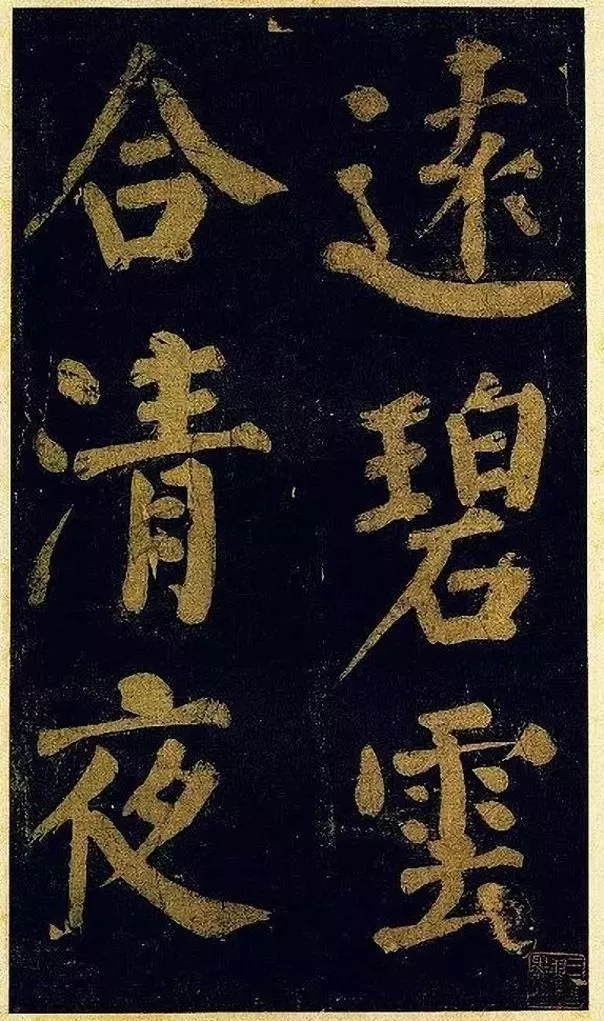 遠碧雲
合清夜